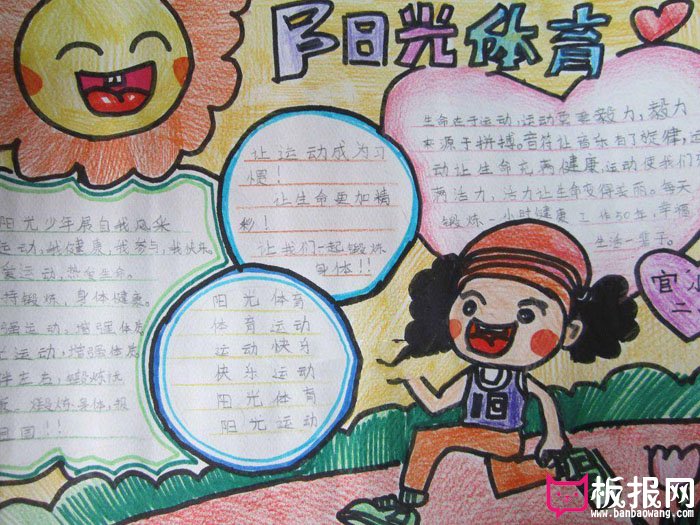 阳光体育
生命在于运动,运动需要毅力,毅力
来源于拼搏,音符让音乐有了旋律,运
动让生命充满健康,运动使我们
满活力,活力让生命变得美丽。每天
锻炼一小时健康工作50年,幸福
生活一辈子。
让运动成为习
惯!
让生命更加精
彩!
让我们一起锻炼
身体!!
阳光少年展自我风采
运动,我健康,我参与,我快乐。
爱运动,热爱生命。
持锻炼,身体健康。
强运动,增强体质
运动,增强体质
伴左右,锻炼
锻炼身体,报
国!!
阳光体育
体育运动
运动快乐
快乐运动
阳光体育
阳光运动
宜
二
板报网
www.banbaowang.com